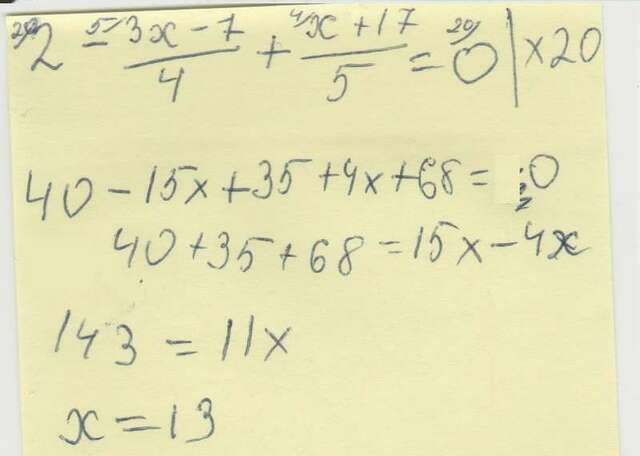 2 - (3x - 7)/4 + (x + 17)/5 = 0 | ×20
40 - 15x + 35 + 4x + 68 = 0
40 + 35 + 68 = 15x - 4x
143 = 11x
x = 13